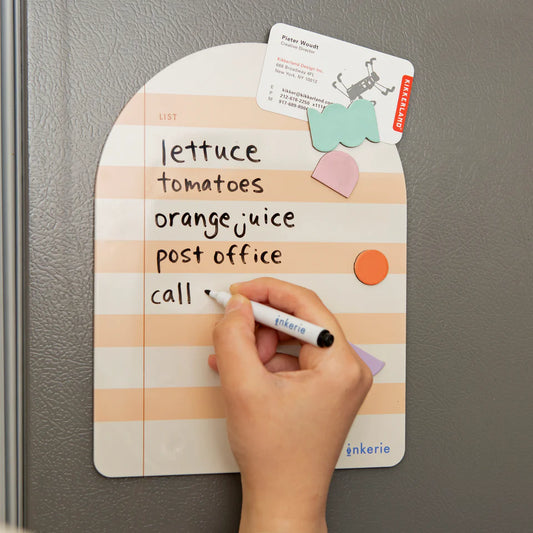 Pieter Woudt
Creative Director
Kikkerland Design Inc.
666 Broadway 4FL
New York, NY 10012
E kikker@kikkerland
P 212-678-2250
M
KIKKERLAND
LIST
lettuce
tomatoes
orange juice
post office
call
inkerie
inkerie